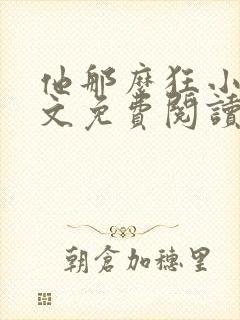 他那麼狂小
文免費閱讀
朝倉加穗里